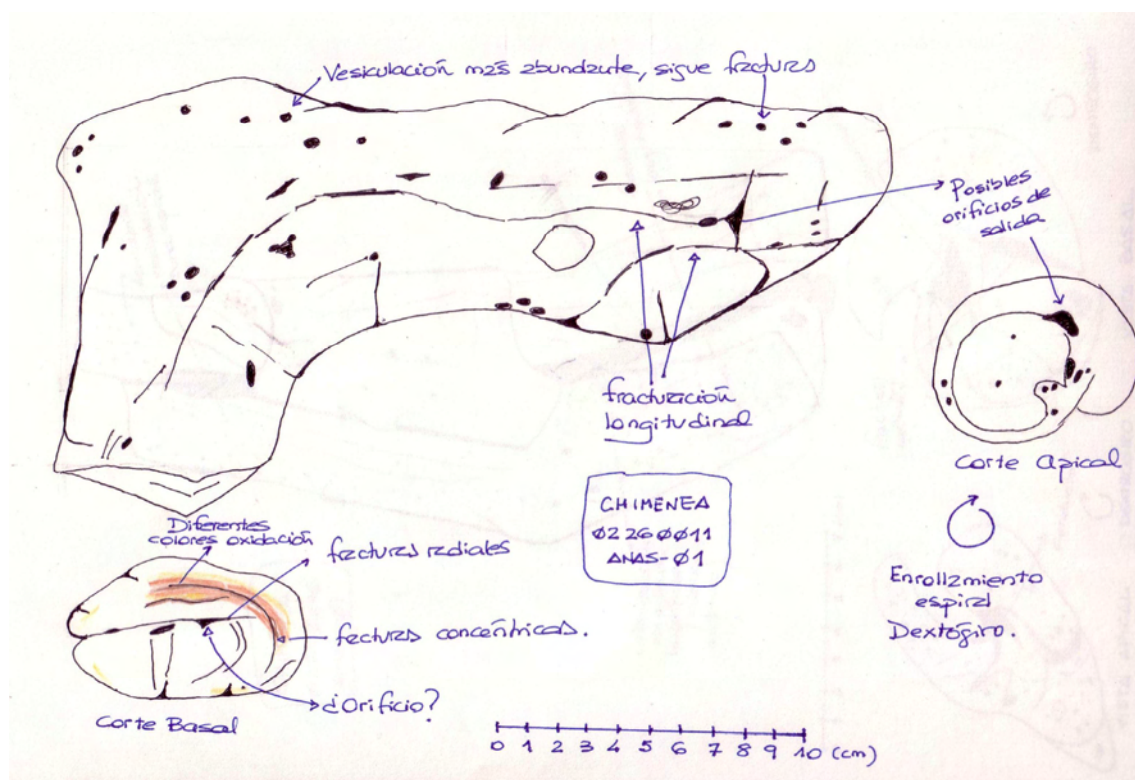 Vesiculación más abundante, sigue fracturas
Posibles
orificios de
salida
fracturación
longitudinal
Corte Apical
CHIMENEA
Ø226ØØ11
ANAS-Ø1
Enrollamiento
espiral
Dextógiro.
Diferentes
colores oxidación
fracturas radiales
fracturas concéntricas.
¿Orificio?
Corte Basal
0 1 2 3 4 5 6 7 8 9 10 (cm)